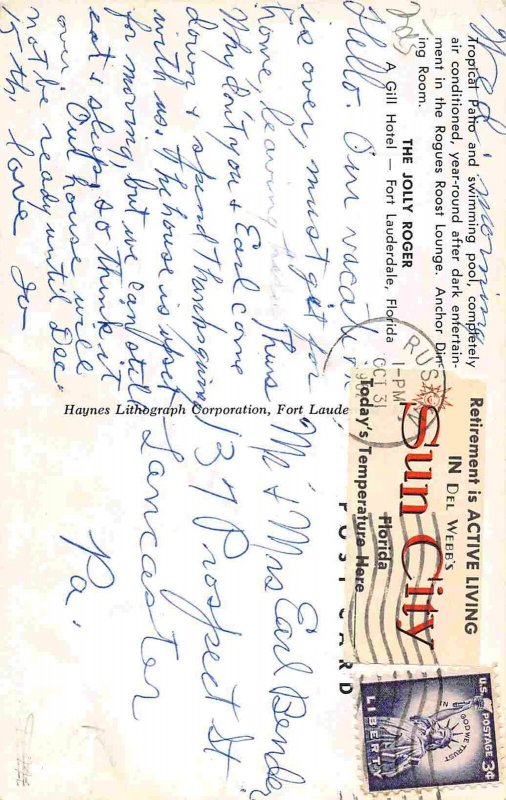 Wed. morning
Tropical Patio and swimming pool, completely
air conditioned, year-round after dark entertain-
ment in the Rogues Roost Lounge. Anchor Din-
ing Room.
THE JOLLY ROGER
A Gill Hotel — Fort Lauderdale, Florida
Hello. Our vacation
is over, must get for
home, leaving here Thurs
Why don't you & Earl come
down & spend Thanksgiving
with us. The house is upset
for moving, but we can still
eat & sleep, so think it
over. Out house will
not be ready until Dec.
15th, love Jo
Haynes Lithograph Corporation, Fort Laude
RUS
1-PM
OCT 31
Retirement is ACTIVE LIVING
IN DEL WEBB'S
Sun City
Florida
Today's Temperature Here
POST CARD
U.S. POSTAGE 3¢
IN GOD WE TRUST
LIBERTY
Mr & Mrs Earl Bender
137 Prospect St
Lancaster
Pa.